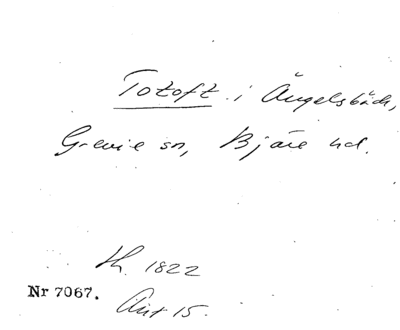 Totoft i Ängelsbäck,
Grevie sn, Bjäre hd.
th. 1822
Nr 7067.
Ant 15.